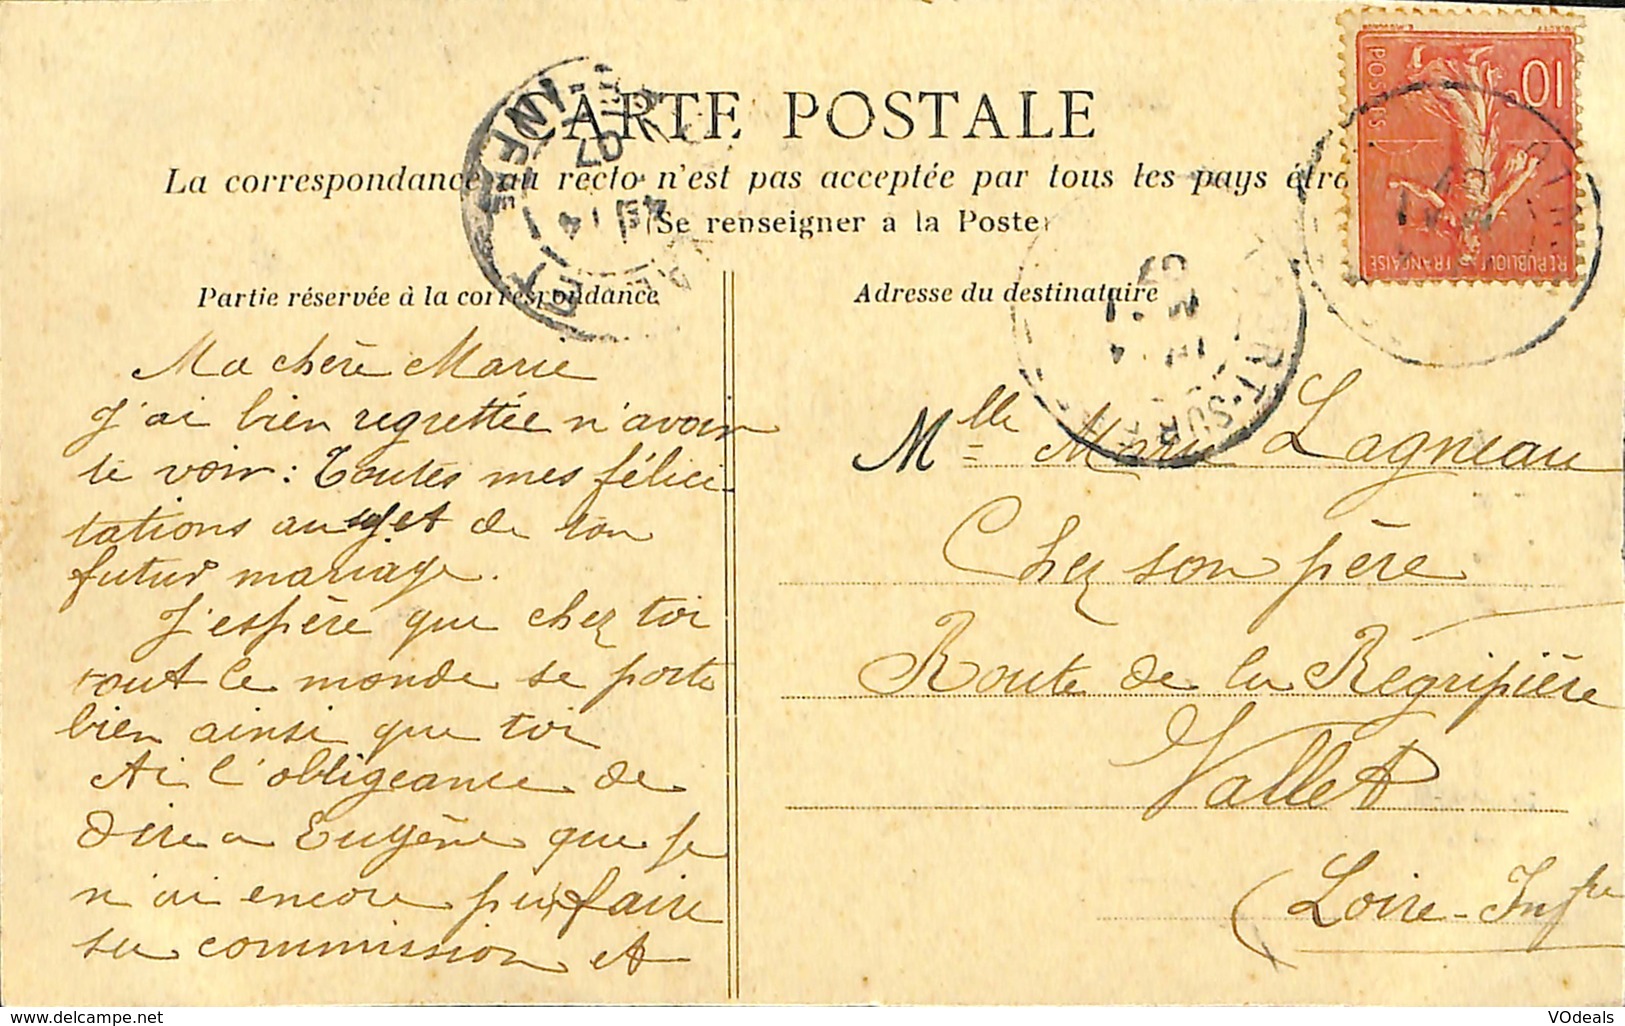 CARTE POSTALE
La correspondance au recto n'est pas acceptée par tous les pays étr
(Se renseigner a la Poste)
Partie réservée à la correspondance
Adresse du destinataire
Ma chère Marie
J'ai bien regrettée n'avoir
te voir : Toutes mes félici
tations au sujet de ton
futur mariage.
J'espère que chez toi
tout le monde se porte
bien ainsi que toi
Ai l'obligeance de
dire a Eugène que je
n'ai encore pu faire
sa commission et
Mlle Marie Lagneau
Chez son père
Route de la Régripière
Vallet
(Loire-Infre
10c
POSTES
REPUBLIQUE FRANÇAISE
VALLET
INFRE
07
RT-SUR
www.delcampe.net
VOdeals